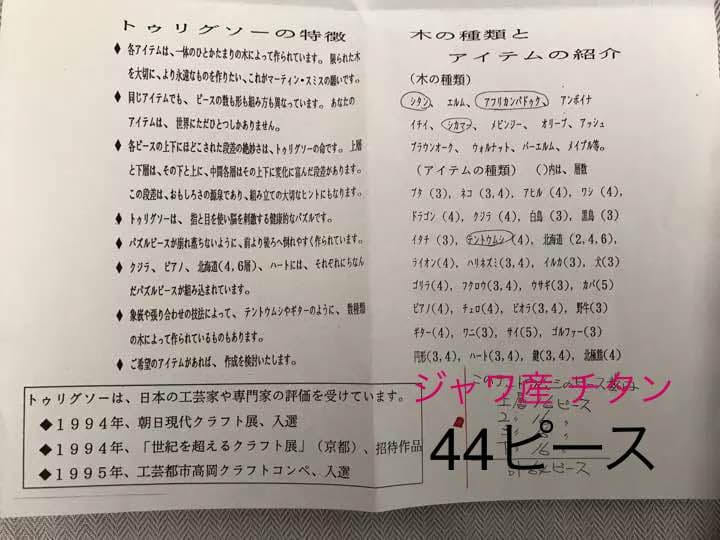 トゥリグソーの特徴
◆ 各アイテムは、一体のひとかたまりの木によって作られています。 限られた木
を大切に、より永遠なものを作りたい、これがマーティン・スミスの願いです。
◆ 同じアイテムでも、 ピースの数も形も組み方も異なっています。 あなたの
アイテムは、 世界にただひとつしかありません。
◆ 各ピースの上下にほどこされた段差の絶妙さは、トゥリグソーの命です。 上層
と下層は、その下と上に、中間各層はその上下に変化に富んだ段差があります。
この段差は、おもしろさの源泉であり、組み立ての大切なヒントにもなります。
◆ トゥリグソーは、 指と目を使い脳を刺激する健康的なパズルです。
◆ パズルピースが崩れ落ちないように、前より後ろへ倒れやすく作られています。
◆ クジラ、 ピアノ、 北海道(4,6層)、 ハートには、 それぞれにちな
んだパズルピースが組み込まれています。
◆ 象嵌や張り合わせの技法によって、 テントウムシやギターのように、 数種類
の木によって作られているものもあります。
◆ ご希望のアイテムがあれば、 作成を検討いたします。
トゥリグソーは、日本の工芸家や専門家の評価を受けています。
◆1994年、朝日現代クラフト展、入選
◆1994年、「世紀を超えるクラフト展」(京都)、招待作品
◆1995年、工芸都市高岡クラフトコンペ、入選
木の種類と
アイテムの紹介
(木の種類)
シタン、 エルム、 アフリカンパドゥク、 アンボイナ
イチイ、 シカマツ、 メビンジー、 オリーブ、 アッシュ
ブラウンオーク、 ウォルナット、 バーエルム、 メイプル等。
(アイテムの種類) ()内は、層数
ブタ(3)、 ネコ(3,4)、 アヒル(4)、 ワシ(4)、
ドラゴン(4)、 クジラ(4)、 白鳥(3)、 黒鳥(3)
イタチ(3)、 テントウムシ(4)、 北海道(2,4,6)、
ライオン(4)、 ハリネズミ(3,4)、 イルカ(3)、 犬(3)
ゴリラ(4)、 フクロウ(3,4)、 ウサギ(3)、 カバ(5)
ピアノ(4)、 チェロ(4)、 ビオラ(3,4)、 野牛(3)
ギター(4)、 ワニ(3)、 サイ(5)、 ゴルファー(3)
円形(3,4)、 ハート(3,4)、 鍵(3,4)、 北極熊(4)
ジャワ産 チタン
ピース
44ピース
ピース